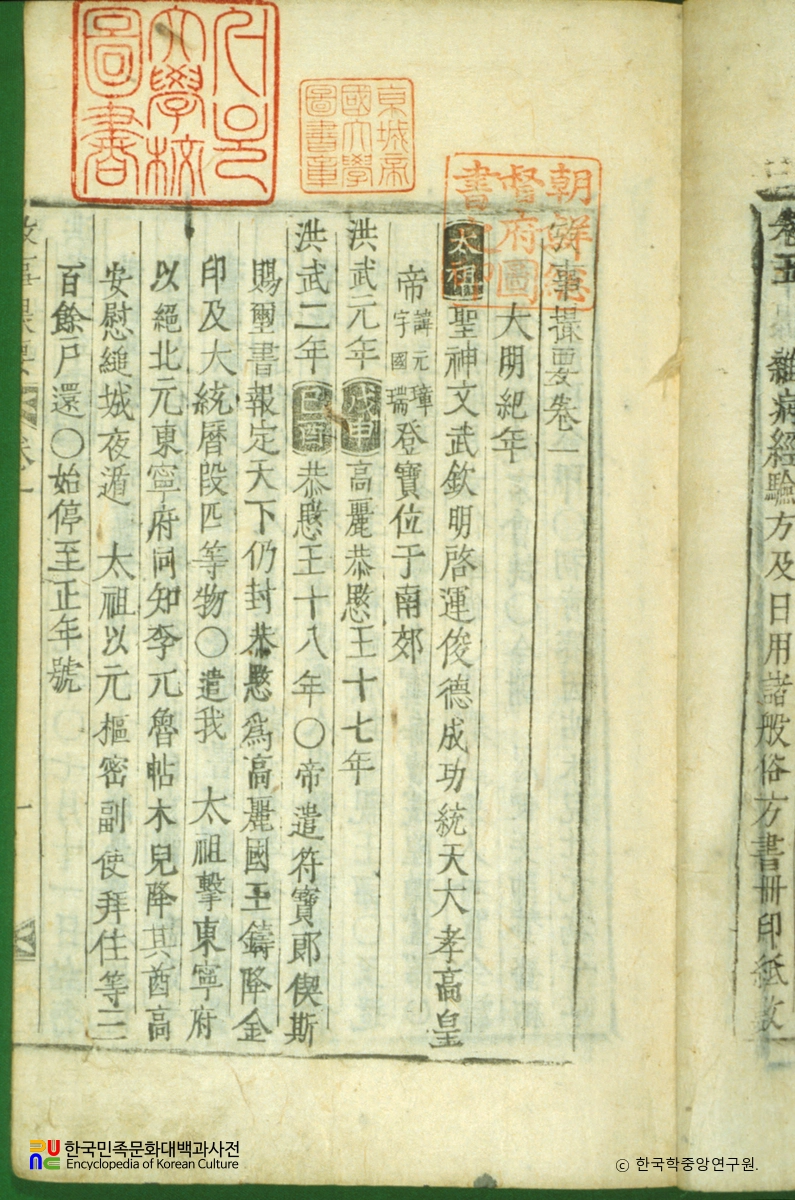 卷五 雜病經驗方及日用諸般俗方書冊印紙數
朝鮮總督府圖書之印
京城帝國大學圖書章
서울大學校圖書
事撮要卷一
大明紀年
太祖聖神文武欽明啓運俊德成功統天大孝高皇
帝諱元璋字國瑞登寶位于南郊
洪武元年戊申高麗恭愍王十七年
洪武二年己酉恭愍王十八年○帝遣符寶郞偰斯
賜璽書報定天下仍封恭愍爲高麗國王鑄降金
印及大統曆段匹等物○遣我 太祖擊東寧府
以絕北元東寧府同知李兀魯帖木兒降其酋高
安慰縋城夜遁 太祖以元樞密副使拜住等三
百餘戶還○始停至正年號
攷事撮要 卷一 一
한국민족문화대백과사전
Encyclopedia of Korean Culture
ⓒ 한국학중앙연구원.